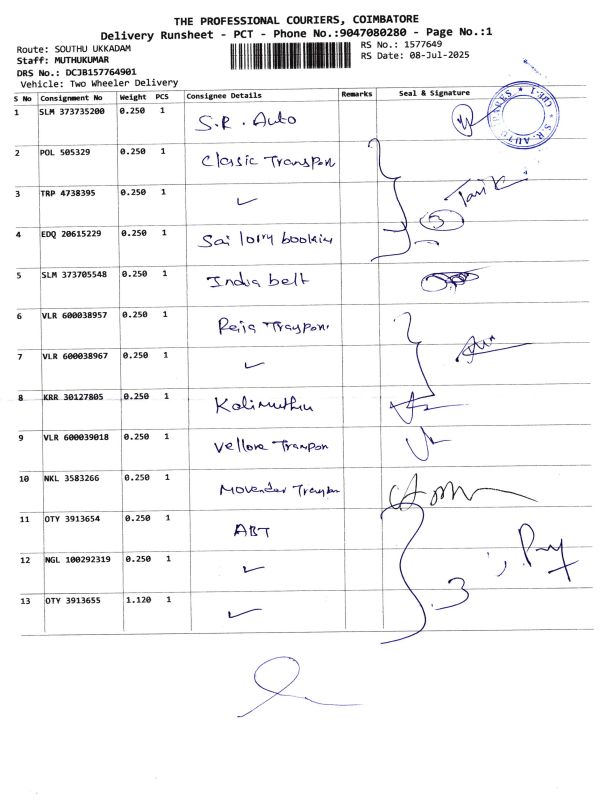 THE PROFESSIONAL COURIERS, COIMBATORE
Delivery Runsheet - PCT - Phone No.:9047080280 - Page No.:1
Route: SOUTHU UKKADAM
RS No.: 1577649
Staff: MUTHUKUMAR
RS Date: 08-Jul-2025
DRS No.: DCJB157764901
Vehicle: Two Wheeler Delivery
S No Consignment No Weight PCS Consignee Details Remarks Seal & Signature
1 SLM 373735200 0.250 1 S.R. Auto
2 POL 505329 0.250 1 Classic Transpon
3 TRP 4738395 0.250 1 Tarik
4 EDQ 20615229 0.250 1 Sai lorry bookin
5 SLM 373705548 0.250 1 India belt
6 VLR 600038957 0.250 1
7 VLR 600038967 0.250 1
8 KRR 30127805 0.250 1 Kalimuthu
9 VLR 600039018 0.250 1 Vellore Transpon
10 NKL 3583266 0.250 1
11 OTY 3913654 0.250 1 ABT
12 NGL 100292319 0.250 1
13 OTY 3913655 1.120 1 3